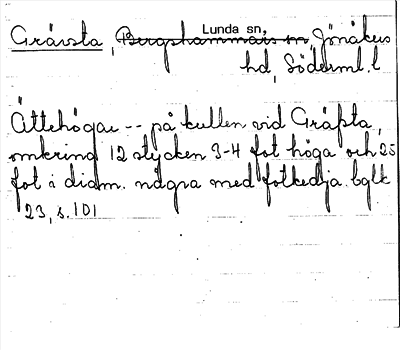 Lunda sn,
Grävsta, Bergshammars sn, Jönåkers
hd, Söderml. l
Ättehögar -- på kullen vid Gräfsta,
omkring 12 stycken 3-4 fot höga och 25
fot i diam. några med fotkedja. bglk
23, s. 101